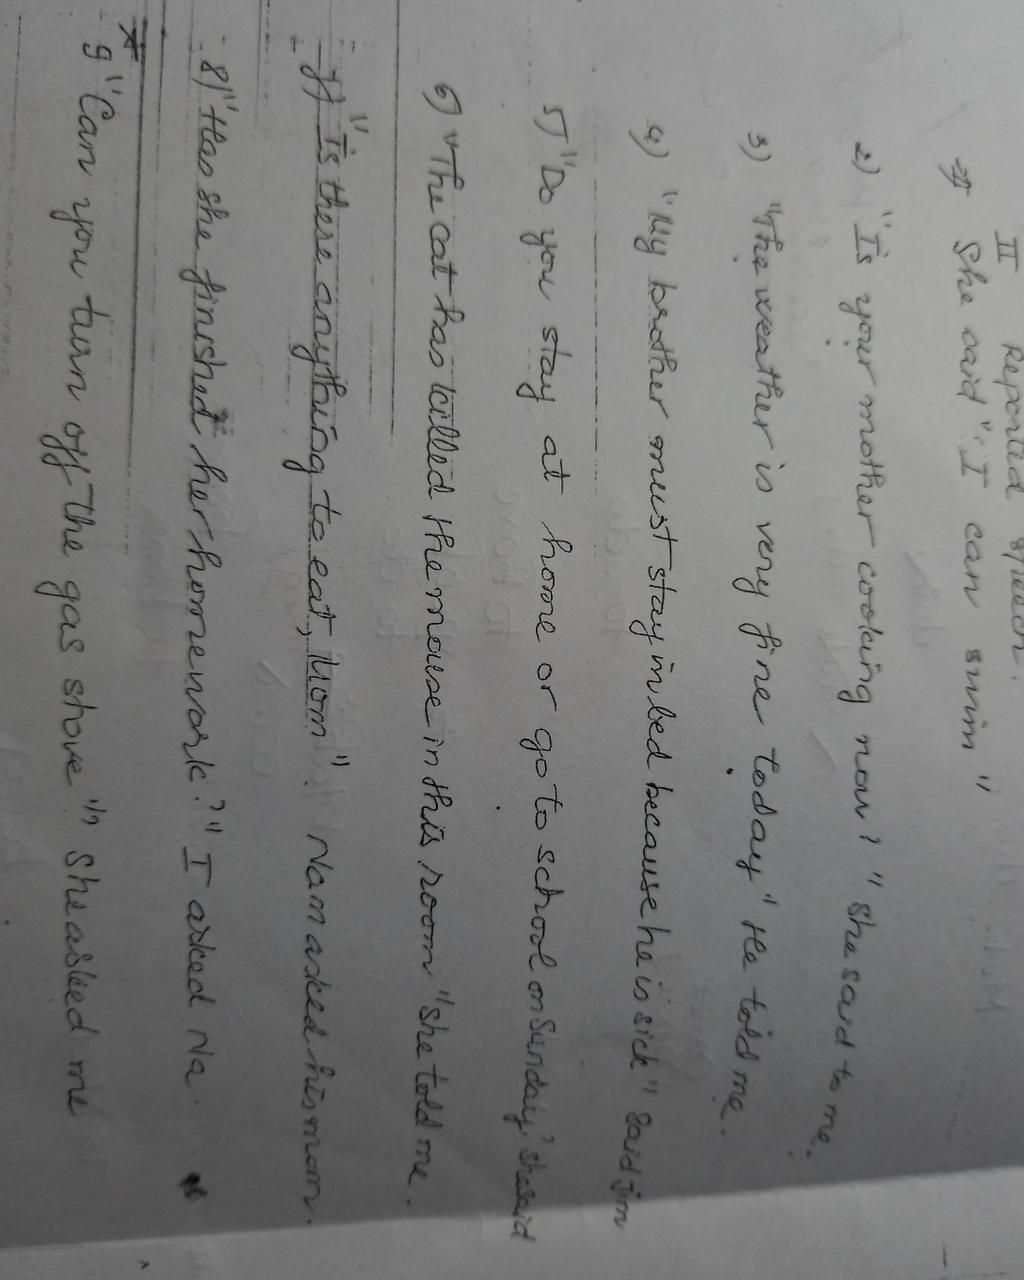 II Reported speech.
1) She said "I can swim"
2) "Is your mother cooking now?" She said to me.
3) "The weather is very fine today" He told me.
4) "My brother must stay in bed because he is sick" Said Jim
5) "Do you stay at home or go to school on Sunday? She said
6) "The cat has killed the mouse in this room" She told me.
7) "Is there anything to eat, Mom" Nam asked his mom.
8) "Has she finished her homework?" I asked Na.
9 "Can you turn off the gas stove" She asked me